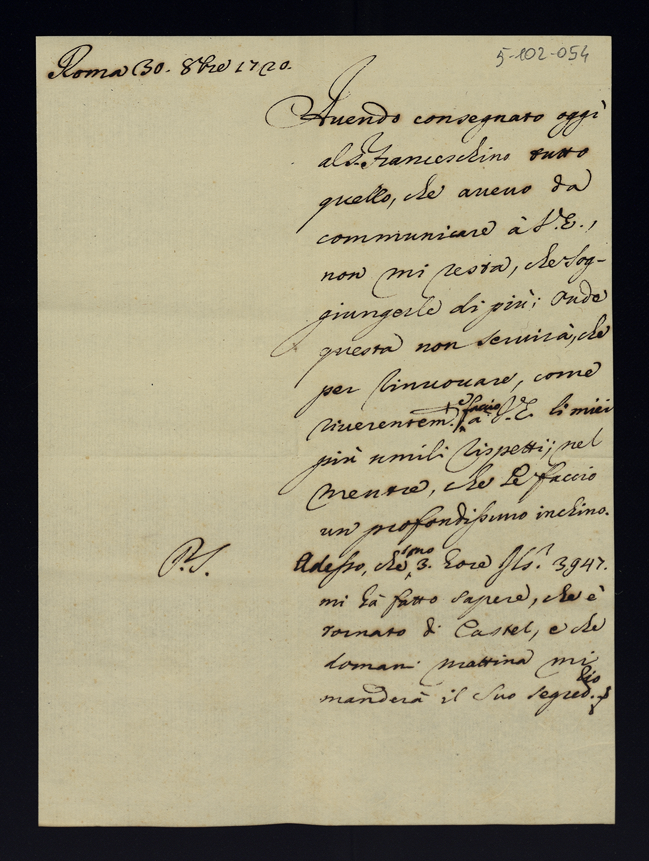 Roma 30. 8bre 1720.
5-102-054
Avendo consegnato oggi
al S. Franceschino tutto
quello, che avevo da
communicare à V.E.,
non mi resta, che sog-
giungerle di più; onde
questa non servirà, che
per rinuovare, come
riverentem. faccio à V.E. li miei
più umili rispetti; nel
mentre, che Le faccio
un profondissimo inchino.
P.S. Adesso, che sono 3. hore 3947.
mi hà fatto sapere, che è
tornato di Castel, e che
doman mattina mi
manderà il suo segred.rio